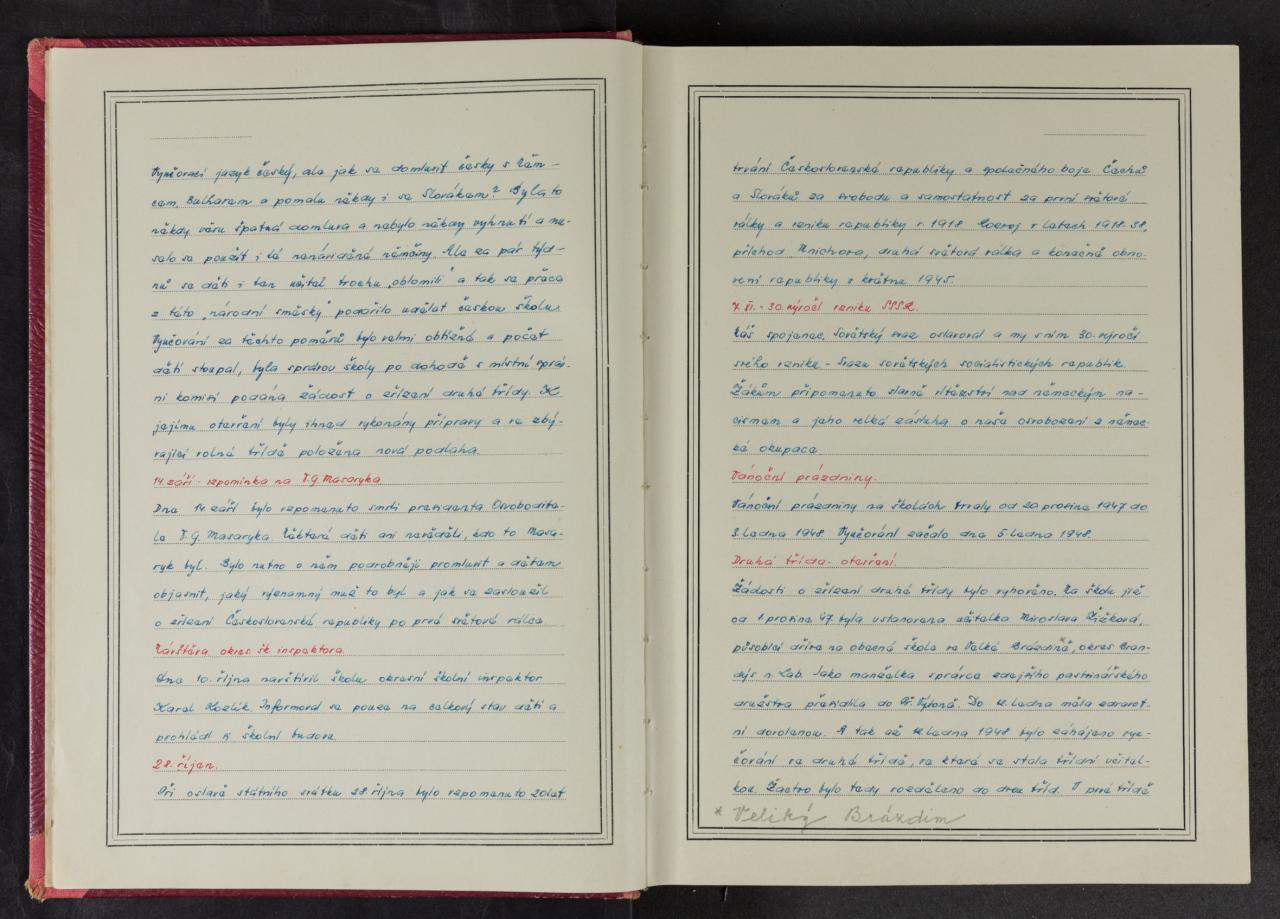 Vyučovací jazyk český, ale jak se domluvit česky s Něm-
cem, Bulharem a pomalu někdy i se Slovákem? Byla to
někdy věru špatná domluva a nebylo někdy vyhnutí a mu-
selo se použít i té nenáviděné němčiny. Ale za pár týd-
nů se děti i ten učitel trochu „oblomili" a tak se práce
z této „národní směsky" podařilo udělat českou školu.
Vyučování za těchto poměrů bylo velmi obtížné a počet
dětí stoupal, byla správou školy po dohodě s místní správ-
ní komisí podána žádost o zřízení druhé třídy. K
jejímu otevření byly ihned vykonány přípravy a ve zbý-
vající volné třídě položena nová podlaha.
14. září - vzpomínka na T.G. Masaryka.
Dne 14. září bylo vzpomenuto smrti presidenta Osvobodite-
le T.G. Masaryka. Některé děti ani nevěděli, kdo to Masa-
ryk byl. Bylo nutno o něm podrobněji promluvit a dětem
objasnit, jaký významný muž to byl a jak se zasloužil
o zřízení Československé republiky po prvé světové válce.
Návštěva okres. šk. inspektora.
Dne 10. října navštívil školu okresní školní inspektor
Karel Kozlík. Informoval se pouze na celkový stav dětí a
prohlédl si školní budovu.
28. říjen.
Při oslavě státního svátku 28. října bylo vzpomenuto 20 let
trvání Československé republiky a společného boje Čechů
a Slováků za svobodu a samostatnost za první světové
války a vzniku republiky r. 1918. Rozvoj v letech 1918-38,
příchod Mnichova, druhá světová válka a konečné obno-
vení republiky v květnu 1945.
7. XI. - 30. výročí vzniku SSSR.
Náš spojenec, Sovětský svaz oslavoval a my s ním 30. výročí
svého vzniku - Svazu sovětských socialistických republik.
Žákům připomenuto slavné vítězství nad německým na-
cismem a jeho velká zásluha o naše osvobození z němec-
ké okupace.
Vánoční prázdniny.
Vánoční prázdniny na školách trvaly od 20. prosince 1947 do
3. ledna 1948. Vyučování začalo dne 5. ledna 1948.
Druhá třída - otevření.
Žádosti o zřízení druhé třídy bylo vyhověno. Na školu již
od 1. prosince 47 byla ustanovena učitelka Miroslava Žižková,
působící dříve na obecné škole ve Velké Brázdině*, okres Bran-
dýs n. Lab. Jako manželka správce zdejšího pastvinářského
družstva přesídlila do Př. Výšině. Do 12. ledna měla zdravot-
ní dovolenou. A tak až 12. ledna 1948 bylo zahájeno vyu-
čování ve druhé třídě, ve které se stala třídní učitel-
kou. Žactvo bylo tedy rozděleno do dvou tříd. V prvé třídě
* Veliký Brázdim